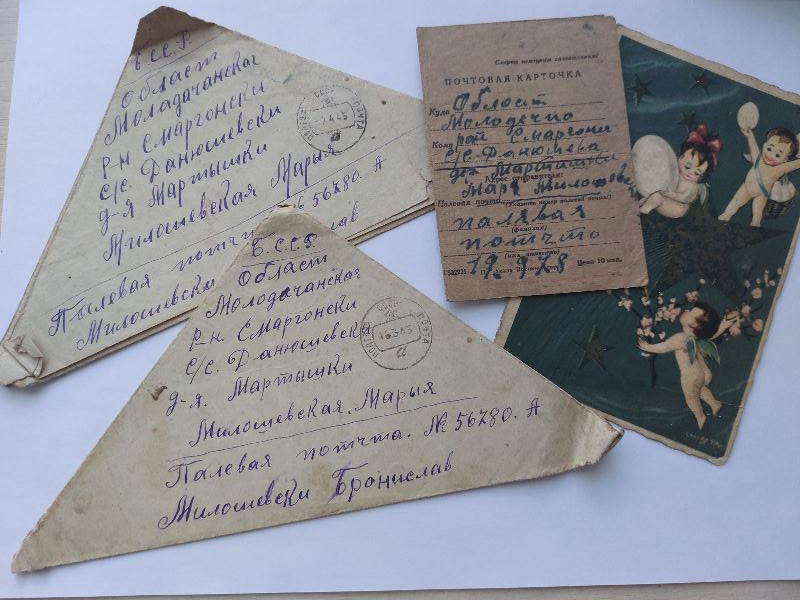 Б.С.С.Р.
Област
Моладачанская
р-н Смаргонски
с/с. Данюшевски
д-я Мартышки
Милошевская Марыя
Пылевая потчта № 56780. А
Милошевски
СССР
ПОЧТА
Б.С.С.Р.
Област
Молодачанская
р-н. Смаргонски
с/с. Данюшевски
д-я. Мартышки
Милошевская Марыя
Палевая потчта. № 56780. А
Милошевски Бронислав
СССР
ПОЧТА
16.3.45
ПОЧТОВАЯ КАРТОЧКА
Куда Област
Молодечно
Кому рай Смаргони
с/с. Данюшева
д-я Мартышки
Адрес отправителя:
Полевая почта
палявая
(фамилия)
потчто
18978
Цена 10 коп.